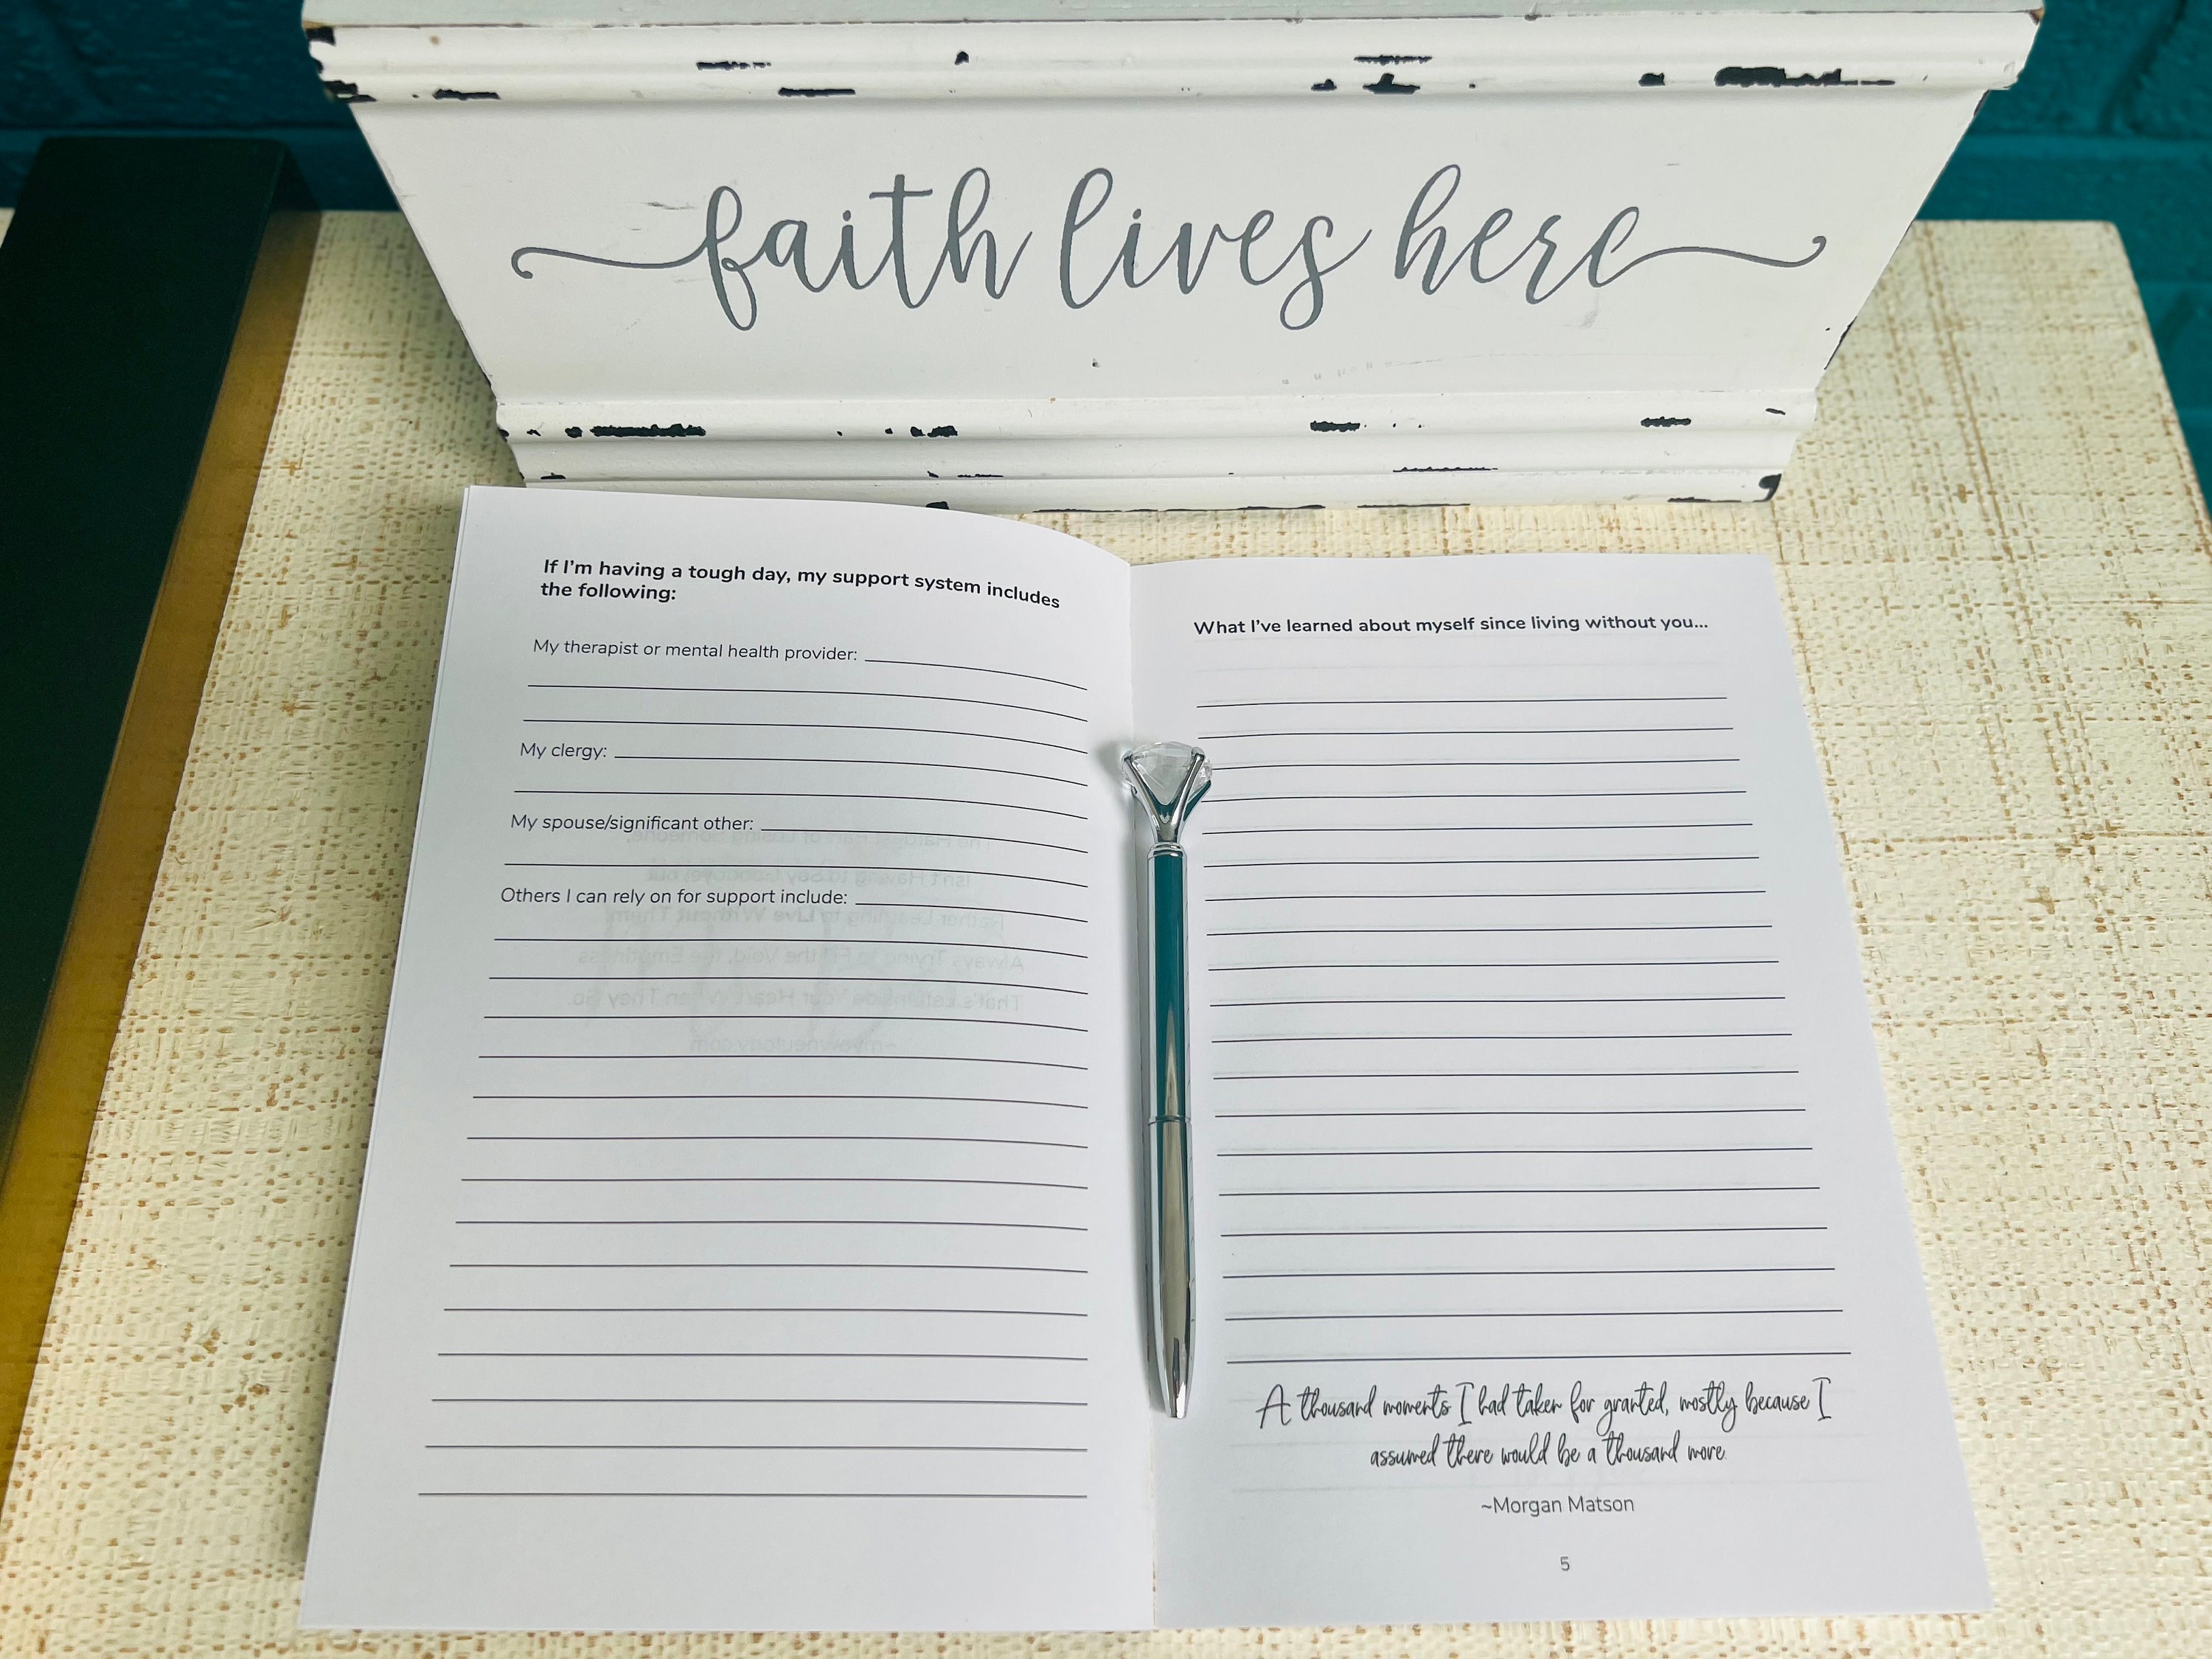 faith lives here
If I'm having a tough day, my support system includes
the following:
My therapist or mental health provider:
My clergy:
My spouse/significant other:
Others I can rely on for support include:
What I've learned about myself since living without you...
A thousand moments I had taken for granted, mostly because I
assumed there would be a thousand more.
~Morgan Matson
5